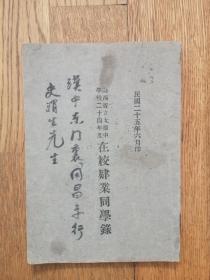 民國二十五年六月印
山西省立太原中
學校二十四年度
在校肄業同學錄
漢中东门裏同昌亨行
史渭生先生